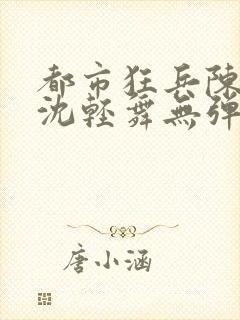 都市狂兵陳
沈輕舞無彈
唐小涵